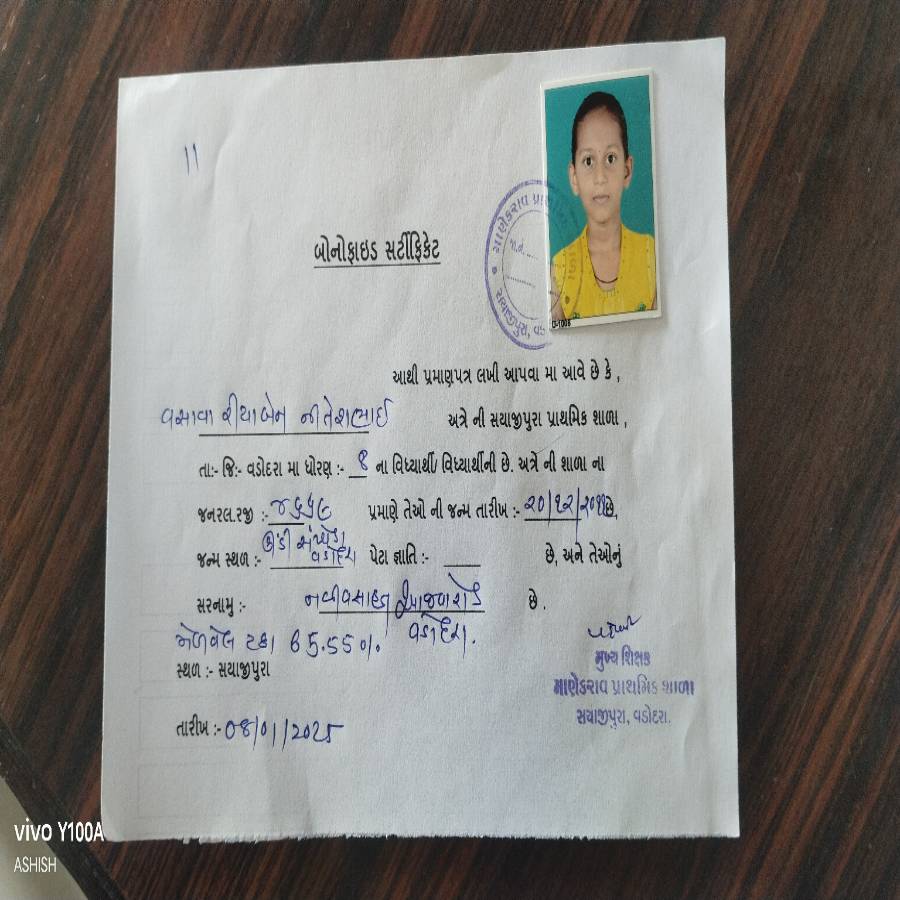 11
બોનોફાઇડ સર્ટીફિકેટ
માણેકરાવ પ્રા
સયાજીપુરા, વડ
D-1008
આથી પ્રમાણપત્ર લખી આપવા મા આવે છે કે ,
વસાવા રીયાબેન નીતેશભાઈ અત્રે ની સયાજીપુરા પ્રાથમિક શાળા ,
તા:- જિ:- વડોદરા મા ધોરણ :- ના વિધ્યાર્થી/ વિધ્યાર્થીની છે. અત્રે ની શાળા ના
જનરલ.રજી :- પ્રમાણે તેઓ ની જન્મ તારીખ :- ૨૦/૧૨/૨૦૧૧ છે,
જન્મ સ્થળ :- વડોદરા પેટા જ્ઞાતિ :- છે, અને તેઓનું
સરનામુ :- નવીવસાહત આજવારોડ છે .
મેળવેલ ટકા 65.55% વડોદરા.
સ્થળ :- સયાજીપુરા
મુખ્ય શિક્ષક
માણેકરાવ પ્રાથમિક શાળા
સયાજીપુરા, વડોદરા.
તારીખ :- 08/01/2025
vivo Y100A
ASHISH